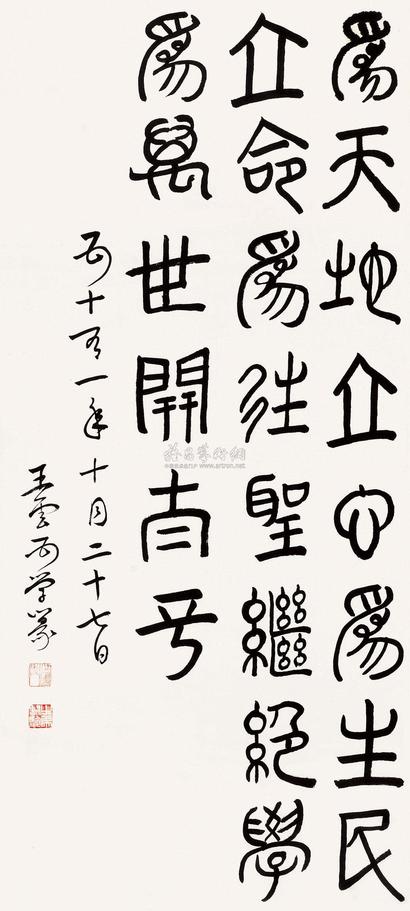 爲天地立心爲生民
立命爲往聖繼絕學
爲萬世開太平
五十有一年十月二十七日
王雲五学篆
雅昌藝術網
www.artron.net